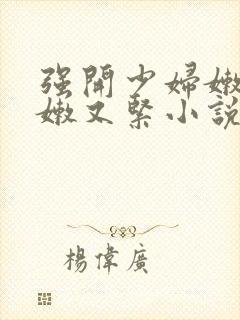 强開少婦嫩
嫩又緊小說
楊偉廣